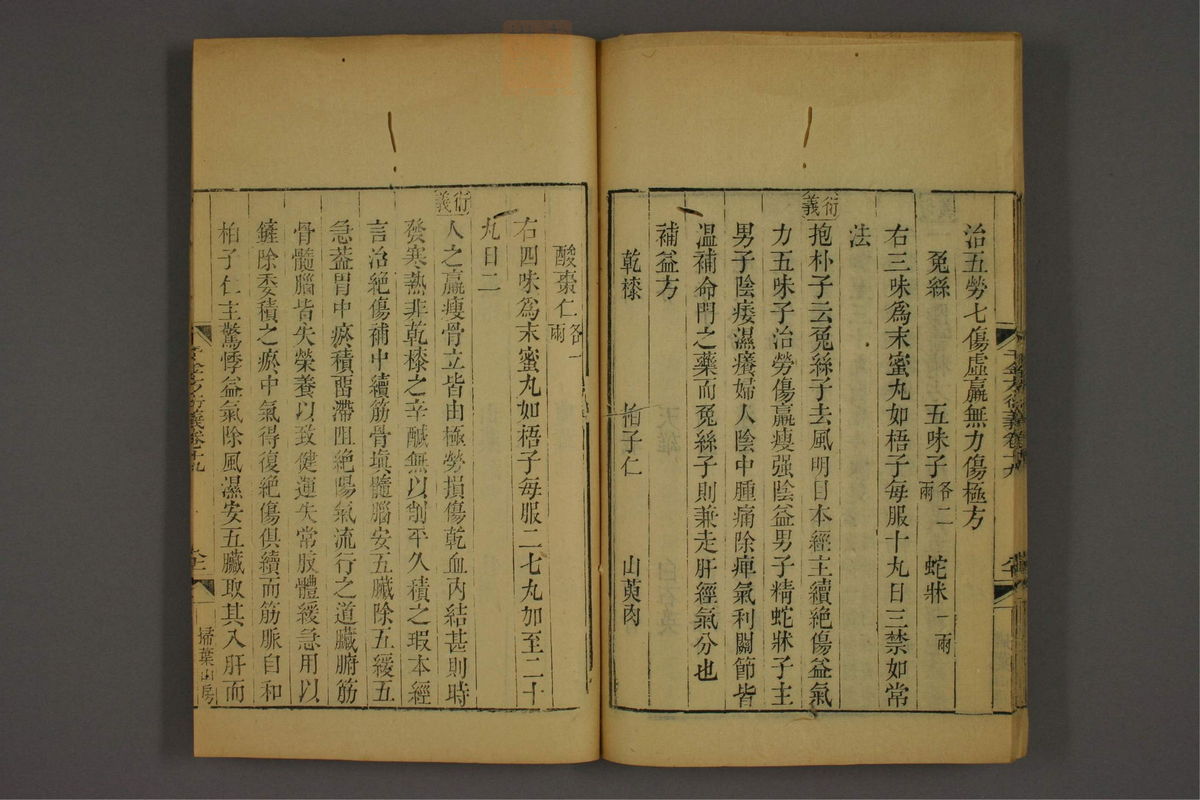 治五勞七傷虛羸無力傷極方
兔絲 五味子各二兩 蛇牀一兩
右三味爲末蜜丸如梧子每服十丸日三禁如常
法
衍義
抱朴子云兔絲子去風明目本經主續絕傷益氣
力五味子治勞傷羸瘦强陰益男子精蛇牀子主
男子陰痿濕癢婦人陰中腫痛除痺氣利關節皆
溫補命門之藥而兔絲子則兼走肝經氣分也
補益方
乾漆 柏子仁 山萸肉
酸棗仁各一兩
右四味爲末蜜丸如梧子每服二七丸加至二十
丸日二
衍義
人之羸瘦骨立皆由極勞損傷乾血內結甚則時
發寒熱非乾漆之辛鹹無以削平久積之瘕本經
言治絕傷補中續筋骨塡髓腦安五臟除五緩五
急蓋胃中瘀積留滯阻絕陽氣流行之道臟腑筋
骨髓腦皆失榮養以致健運失常肢體緩急用以
鏟除委積之瘀中氣得復絕傷俱續而筋脈自和
柏子仁主驚悸益氣除風濕安五臟取其入肝而
掃葉山房